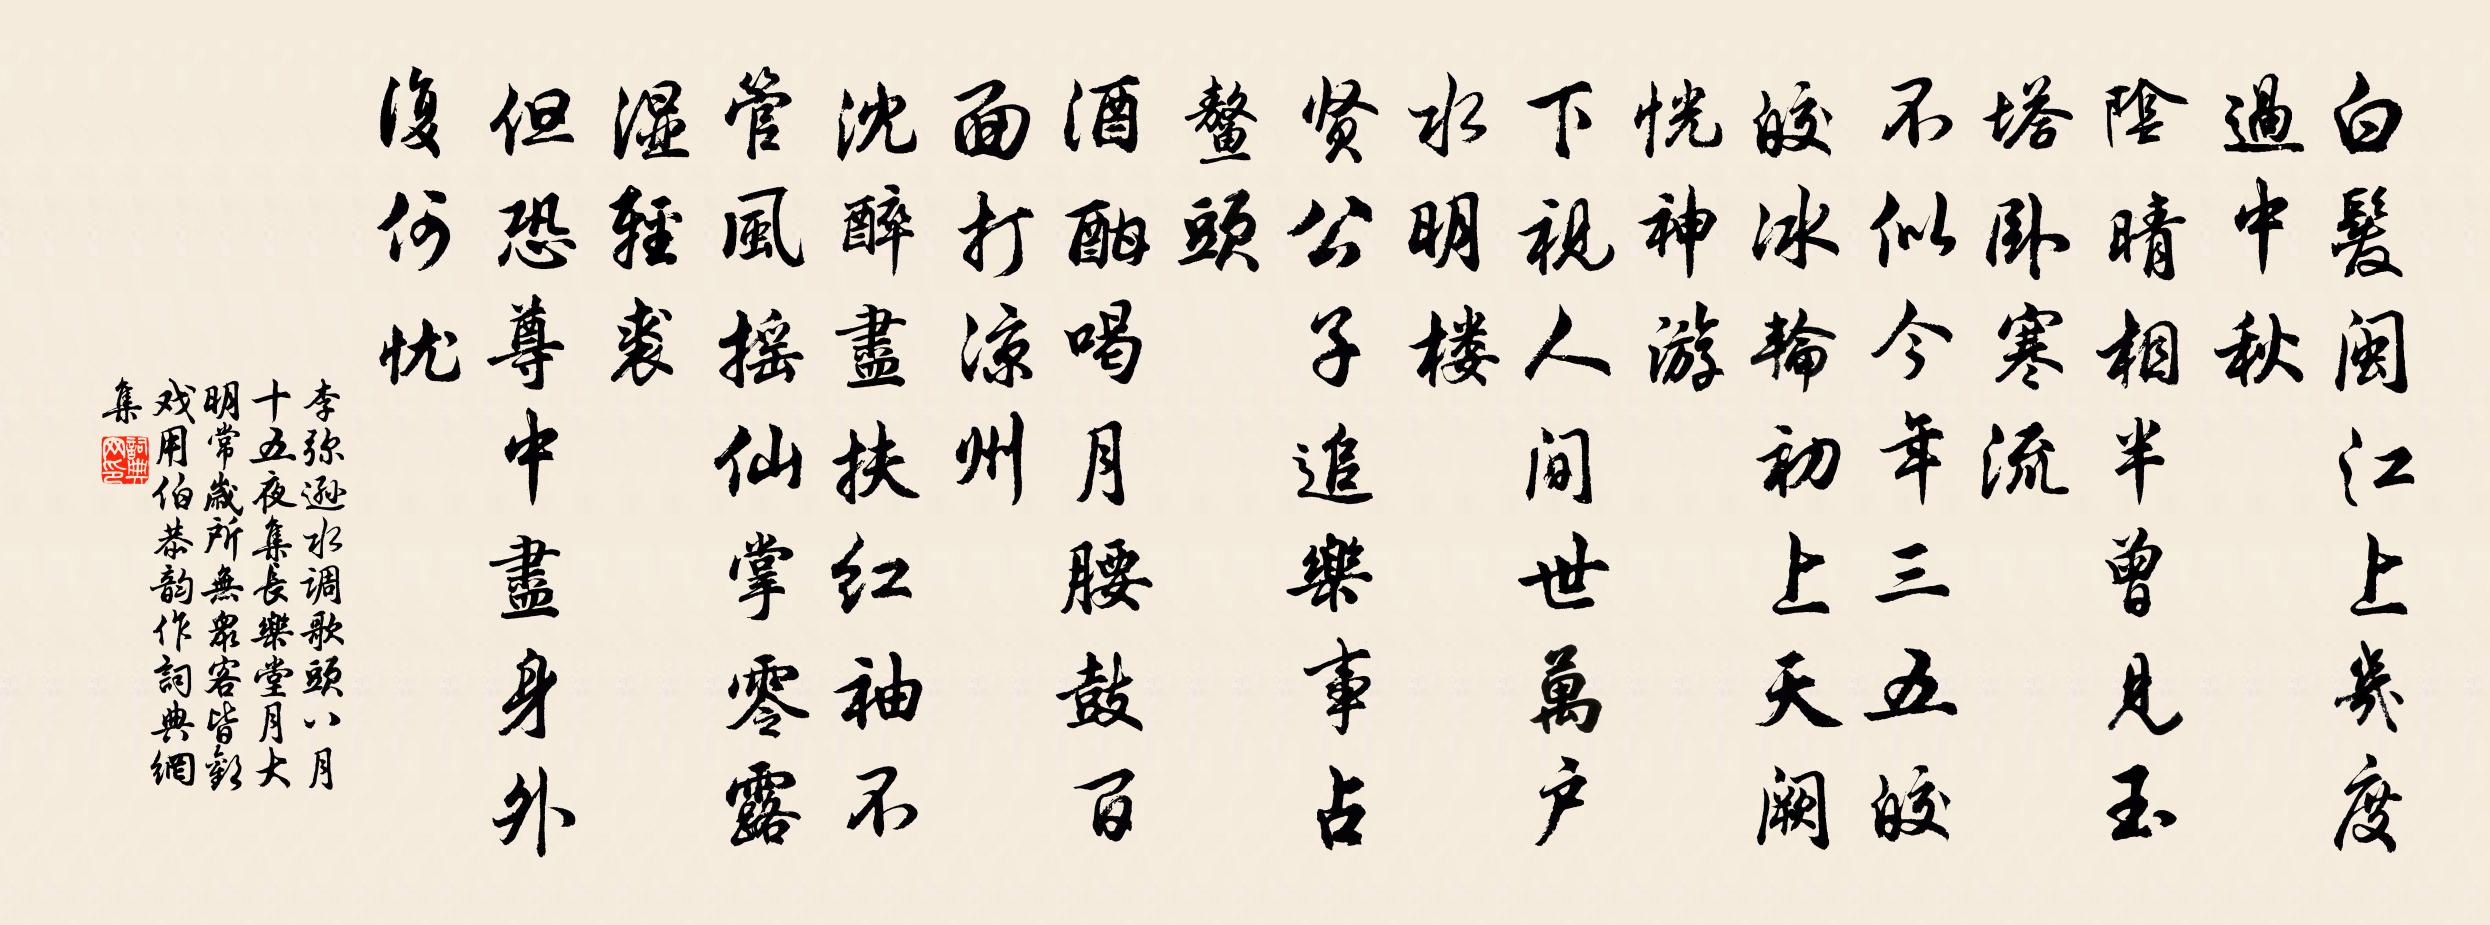 白髮闽江上幾度
過中秋
陰晴相半曾見玉
塔卧寒流
不似今年三五皎
皎冰輪初上天阙
恍神游
下視人间世萬户
水明楼
贤公子追樂事占
鳌頭
酒酣喝月腰鼓百
面打凉州
沈醉盡扶红袖不
管風摇仙掌零露
湿輕裘
但恐尊中盡身外
復何忧
李弥遜水调歌頭八月
十五夜集長樂堂月大
明常歲所無衆客皆歡
戏用伯恭韵作詞典網
集
詞典網印